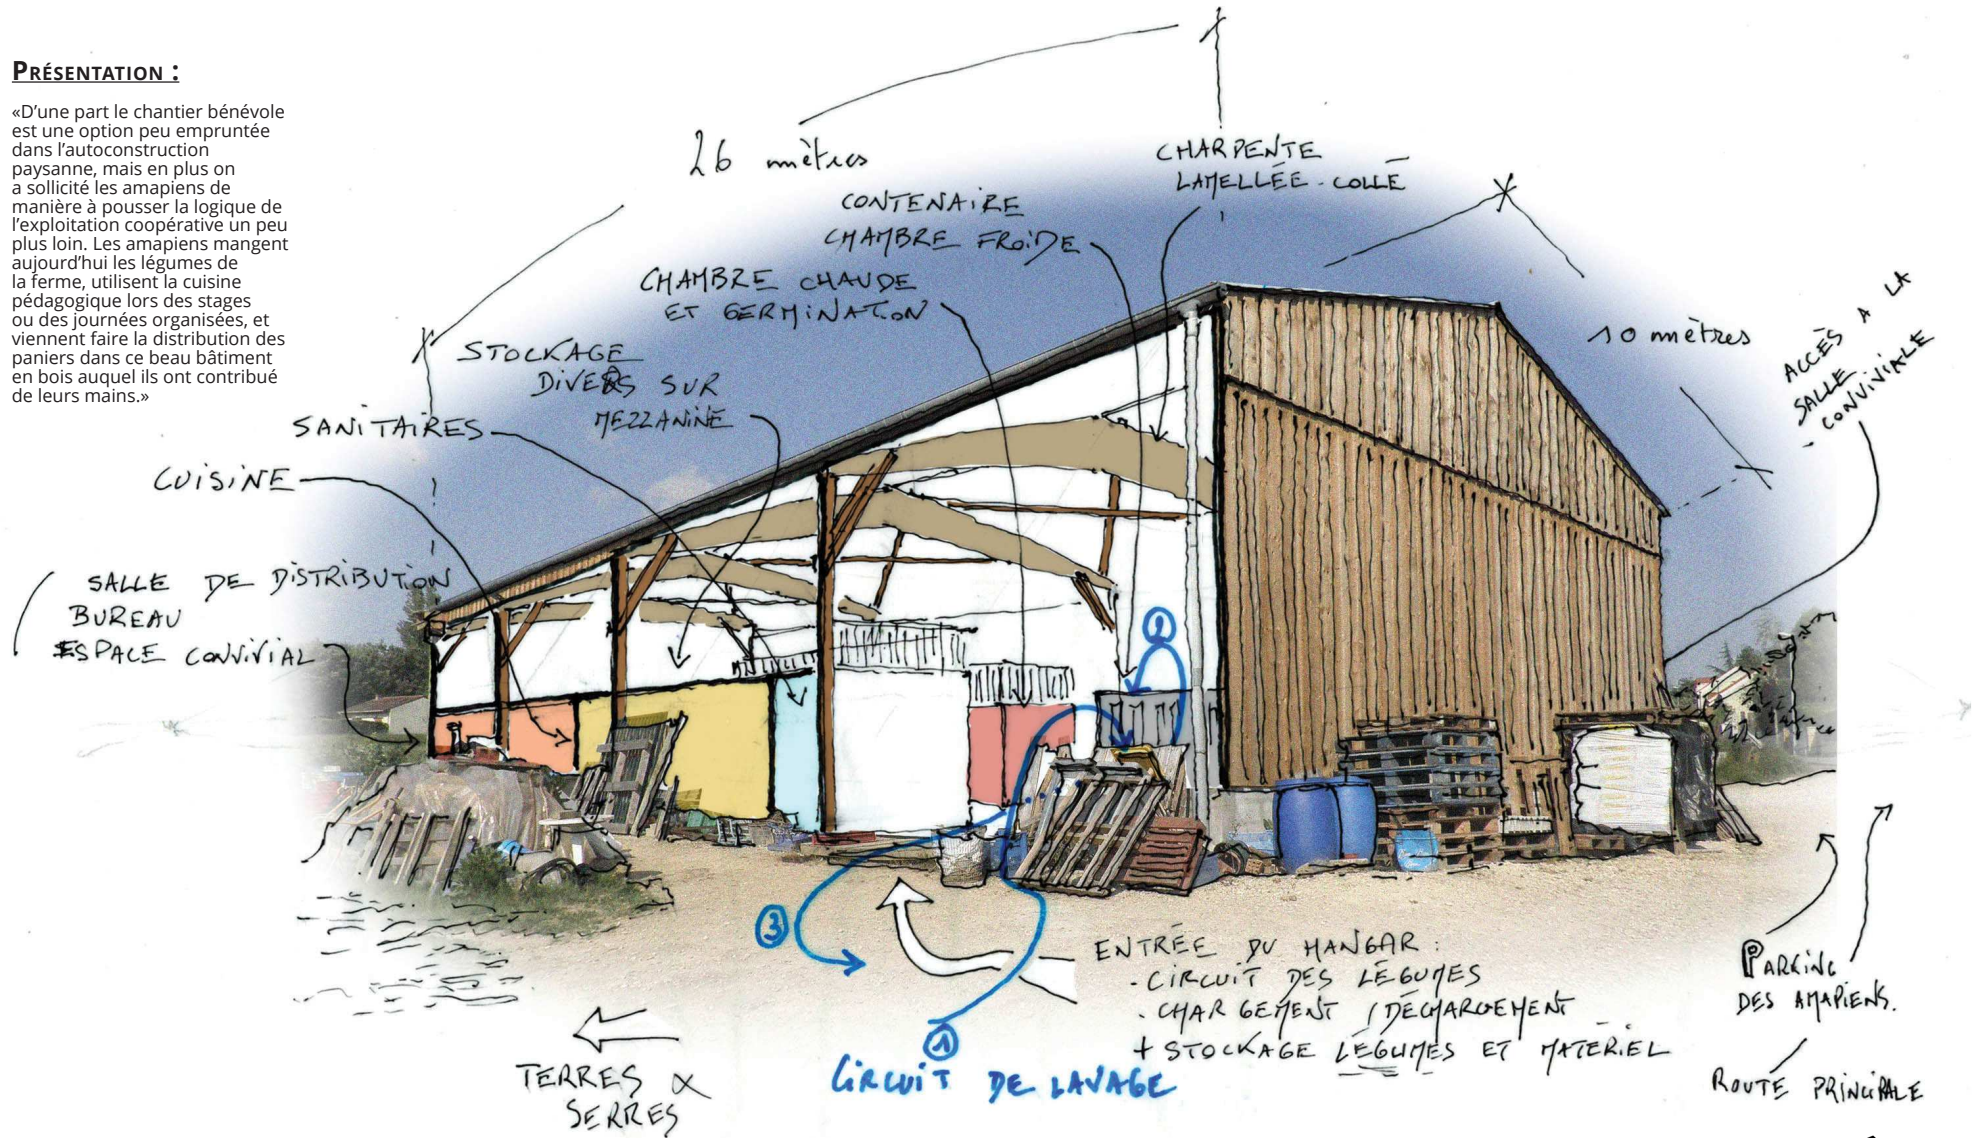 PRÉSENTATION :
«D'une part le chantier bénévole
est une option peu empruntée
dans l'autoconstruction
paysanne, mais en plus on
a sollicité les amapiens de
manière à pousser la logique de
l'exploitation coopérative un peu
plus loin. Les amapiens mangent
aujourd'hui les légumes de
la ferme, utilisent la cuisine
pédagogique lors des stages
ou des journées organisées, et
viennent faire la distribution des
paniers dans ce beau bâtiment
en bois auquel ils ont contribué
de leurs mains.»
26 mètres
CHARPENTE
LAMELLÉE-COLLÉ
CONTENAIRE
CHAMBRE FROIDE
CHAMBRE CHAUDE
ET GERMINATION
STOCKAGE
DIVERS SUR
MEZZANINE
SANITAIRES
CUISINE
SALLE DE DISTRIBUTION
BUREAU
ESPACE CONVIVIAL
10 mètres
ACCÈS A LA
SALLE
CONVIVIALE
2
3
1
CIRCUIT DE LAVAGE
ENTRÉE DU HANGAR :
- CIRCUIT DES LÉGUMES
- CHARGEMENT / DÉCHARGEMENT
+ STOCKAGE LÉGUMES ET MATÉRIEL
TERRES &
SERRES
PARKING
DES AMAPIENS.
ROUTE PRINCIPALE